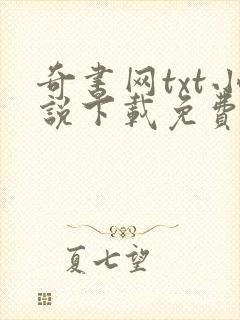 奇书网txt小
說下載免費
夏七望